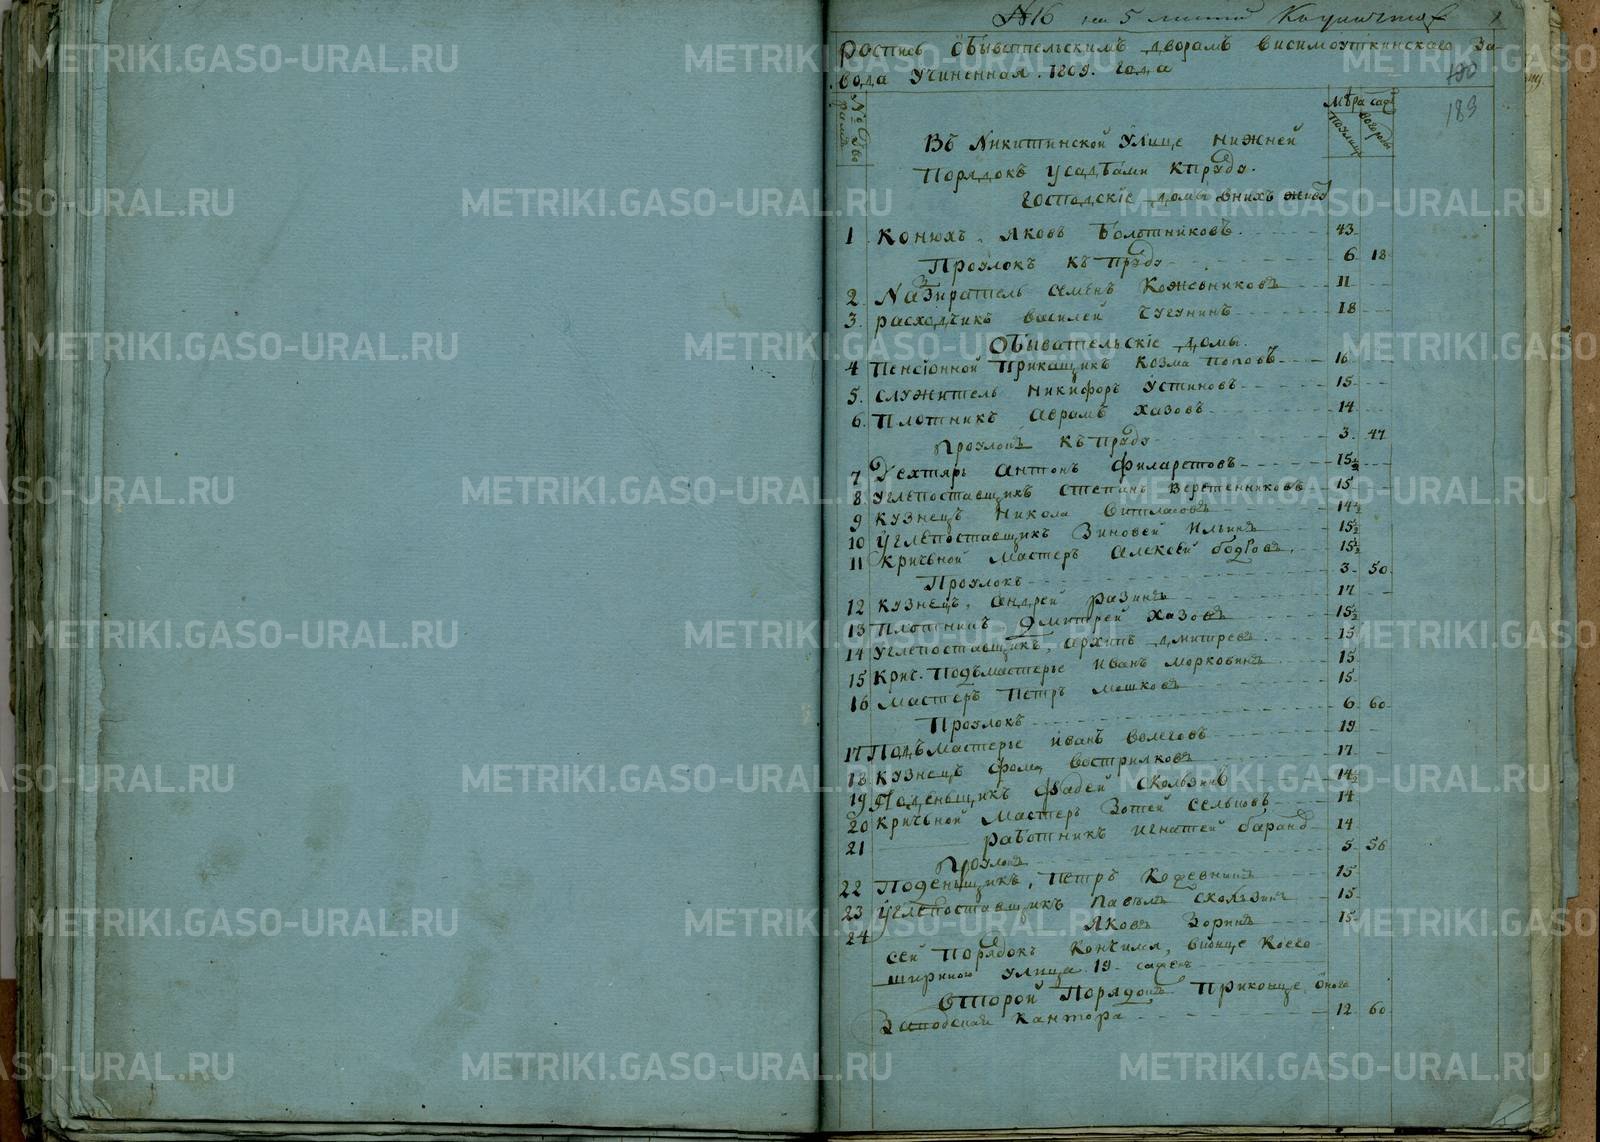 №16 на 5 листах
Роспись Обывательскимъ дворамъ висимоуткинскаго за-
вода Учиненная 1809. года
180
183
№
домам
мѣра саж
поулице
Въ Никитинской Улице нижней
Порядокъ усадбами Кпруду.
Господскіе домы внихъ живут
1 Конюхъ Яковъ Болотниковъ 43
Проулокъ къ пруду 6 18
2 Назиратель семенъ Кожевниковъ 11
3. расходчикъ василей Чугунинъ 18
Обывательскіе домы.
4 Пенсіонной Прикащикъ Козма поповъ 16
5. служитель никифоръ Устиновъ 15
6. Плотникъ аврамъ хазовъ 14
Проулокъ къ пруду 3. 47
7 Дехтярь антонъ филаретовъ 15½
8 Углепоставщикъ степанъ Веретенниковъ 15
9 Кузнецъ Никола 14½
10 Углепоставщикъ Зиновей Ильинъ 15½
11 Кричной мастеръ алексей 15½
Проулокъ 3 50
12 Кузнецъ, андрей разинъ 17
13 Плотникъ Дмитрей хазовъ 15½
14 Углепоставщикъ, архипъ дмитревъ 15
15 Крич. Подъмастерье иванъ морковинъ 15
16 мастеръ Петръ мошковъ 15
Проулокъ 6 60
17 Подъмастерье иванъ волеговъ 19
18 Кузнецъ фома востриковъ 17
19 Поденьщикъ фадей Скользинъ 14½
20 Кричной мастеръ Зотей сельцовъ 14
21 работникъ игнатей 14
Проулокъ 5 56
22 Поденьщикъ, Петръ Кожевнинъ 15
23 Углепоставщикъ павелъ скользинъ 15
24 Яковъ Зоринъ 15
сей Порядокъ Кончился, вконце Коего
шириною улица 19 сажен
Второй Порядокъ Приконце, оного
Заводская Кантора 12 60
METRIKI.GASO-URAL.RU